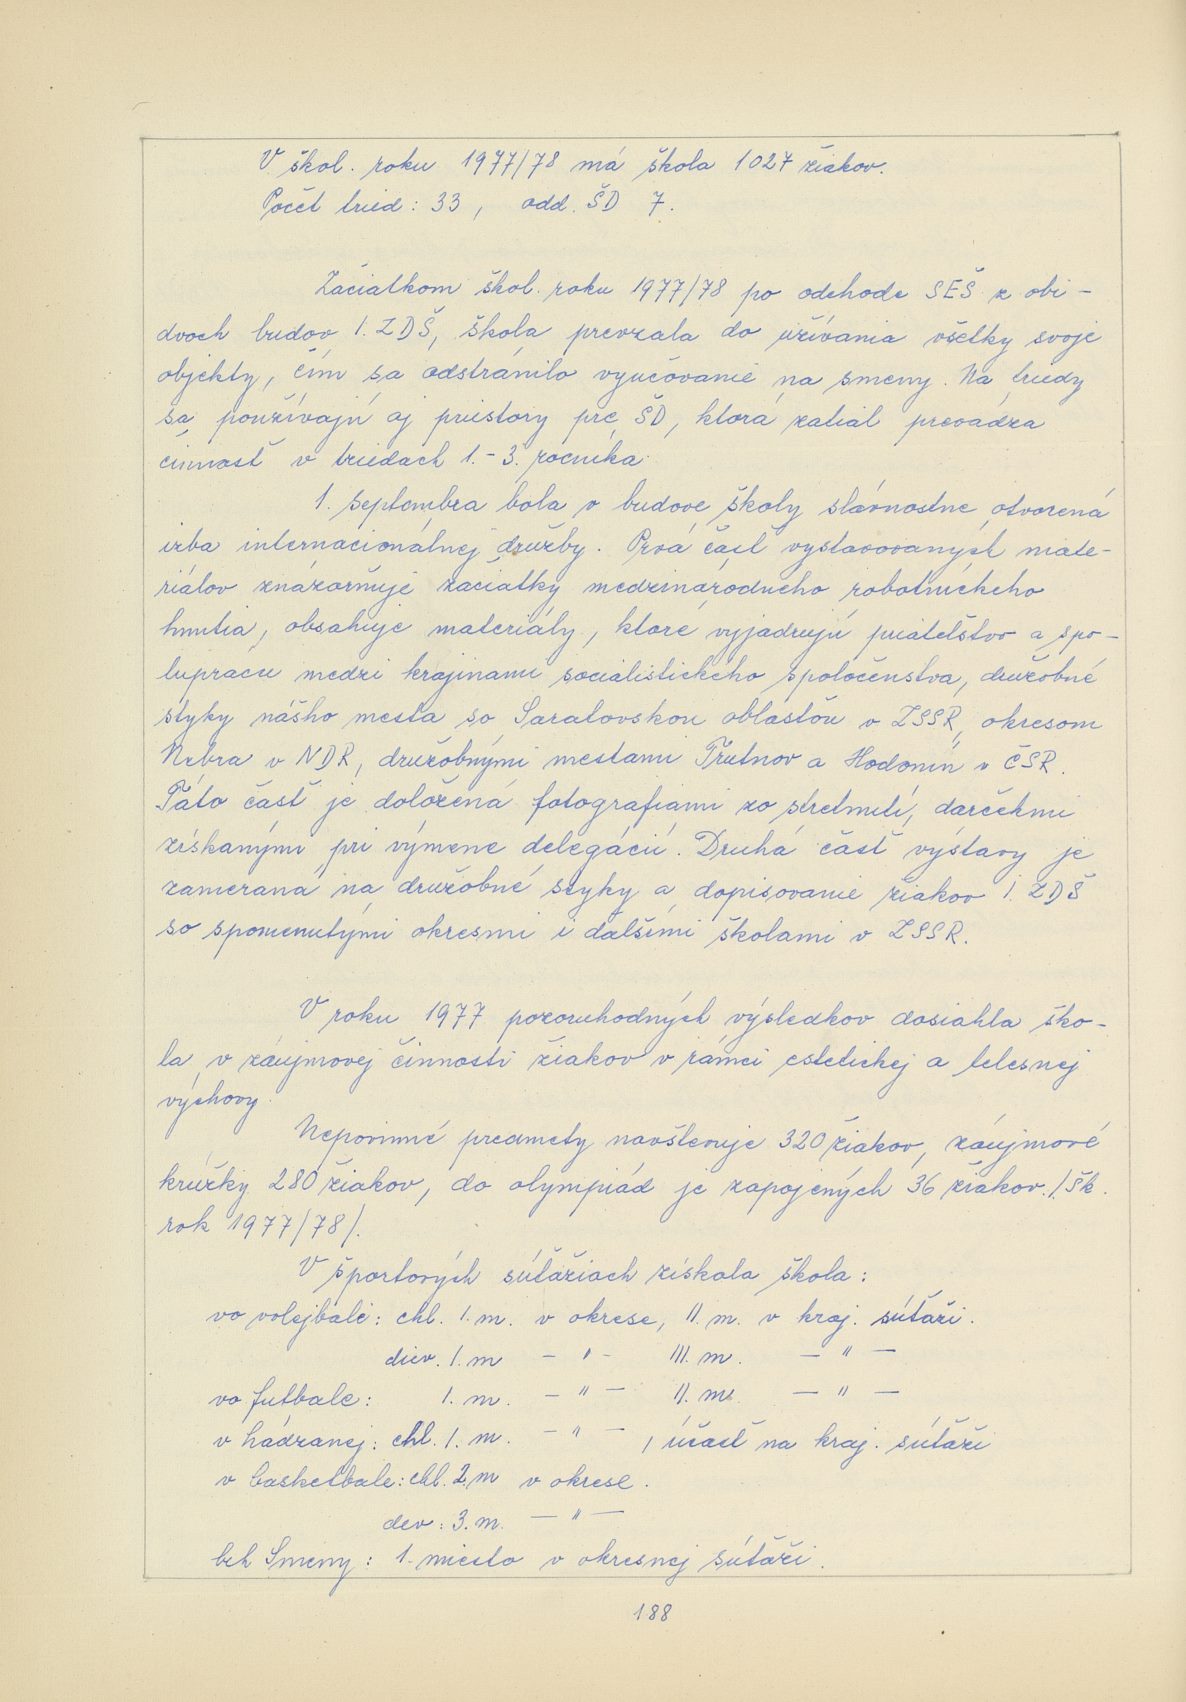 V škol. roku 1977/78 má škola 1027 žiakov.
Počet tried: 33, odd. ŠD 7.
Začiatkom škol. roku 1977/78 po odchode SEŠ z obi-
dvoch budov I. ZDŠ, škola prevzala do užívania všetky svoje
objekty, čím sa odstránilo vyučovanie na smeny. Na triedy
sa používajú aj priestory pre ŠD, ktorá zatiaľ prevádza
činnosť v triedach 1.-3. ročníka.
1. septembra bola v budove školy slávnostne otvorená
izba internacionálnej družby. Prvá časť vystavovaných mate-
riálov znázorňuje začiatky medzinárodného robotníckeho
hnutia, obsahuje materiály, ktoré vyjadrujú priateľstvo a spo-
luprácu medzi krajinami socialistického spoločenstva, družobné
styky nášho mesta so Saratovskou oblasťou v ZSSR, okresom
Nebra v NDR, družobnými mestami Trutnov a Hodonín v ČSR.
Táto časť je doložená fotografiami zo stretnutí, darčekmi
získanými pri výmene delegácií. Druhá časť výstavy je
zameraná na družobné styky a dopisovanie žiakov I. ZDŠ
so spomenutými okresmi i ďalšími školami v ZSSR.
V roku 1977 pozoruhodných výsledkov dosiahla ško-
la v záujmovej činnosti žiakov v rámci estetickej a telesnej
výchovy.
Nepovinné predmety navštevuje 320 žiakov, záujmové
krúžky 280 žiakov, do olympiád je zapojených 36 žiakov. /šk.
rok 1977/78/.
V športových súťažiach získala škola:
vo volejbale: chl. I. m. v okrese, II. m. v kraj. súťaži.
diev. I. m – " – III. m. – " –
vo futbale: I. m. – " – II. m. – " –
v hádzanej: chl. I. m. – " – , účasť na kraj. súťaži
v basketbale: chl. 2. m v okrese.
dev: 3. m. – " –
beh Smeny: 1. miesto v okresnej súťaži.
188